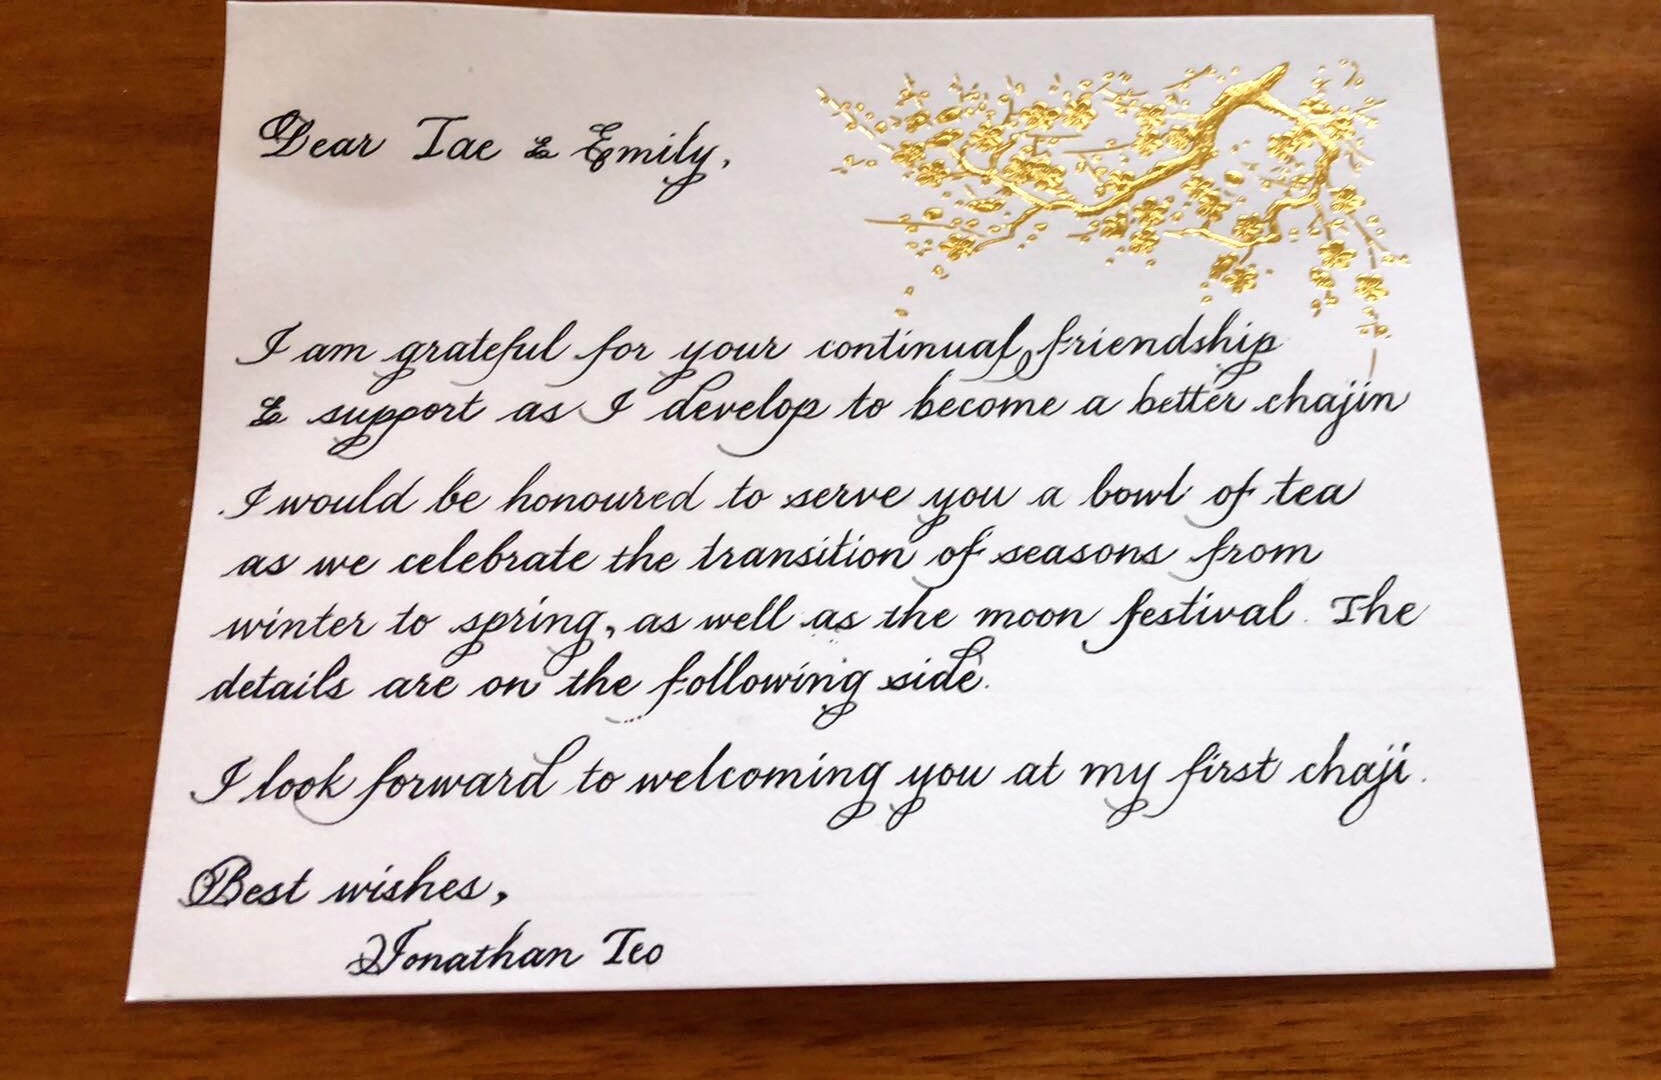 Dear Tae & Emily,
I am grateful for your continual friendship
& support as I develop to become a better chajin
I would be honoured to serve you a bowl of tea
as we celebrate the transition of seasons from
winter to spring, as well as the moon festival. The
details are on the following side.
I look forward to welcoming you at my first chaji.
Best wishes,
Jonathan Teo